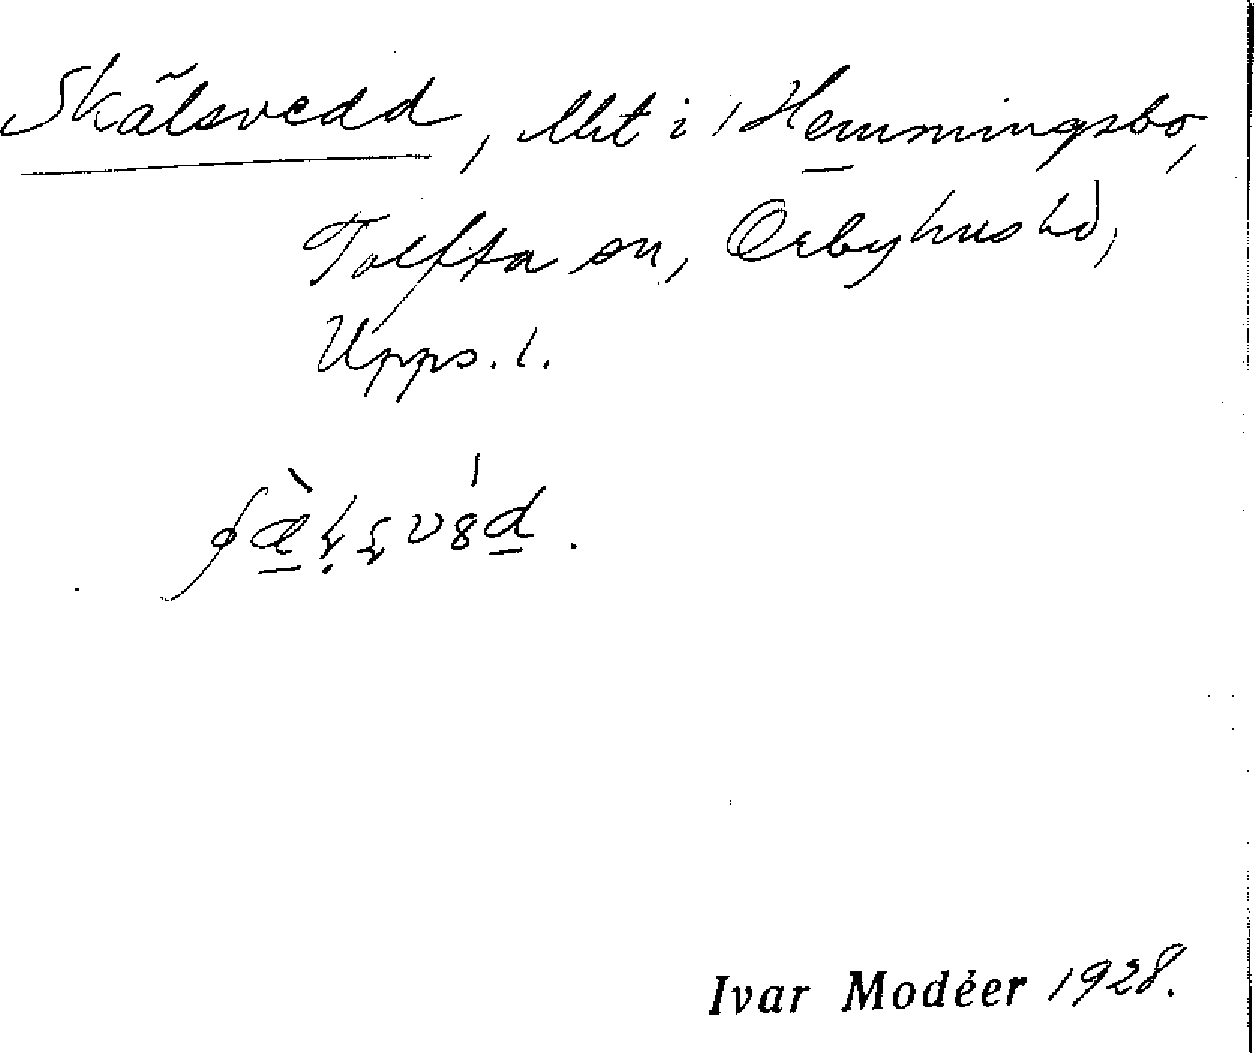 Skälsvedd, lht i Hemmingsbo,
Tolfta sn, Örbyhus hd,
Upps. l.
Ivar Modéer 1928.